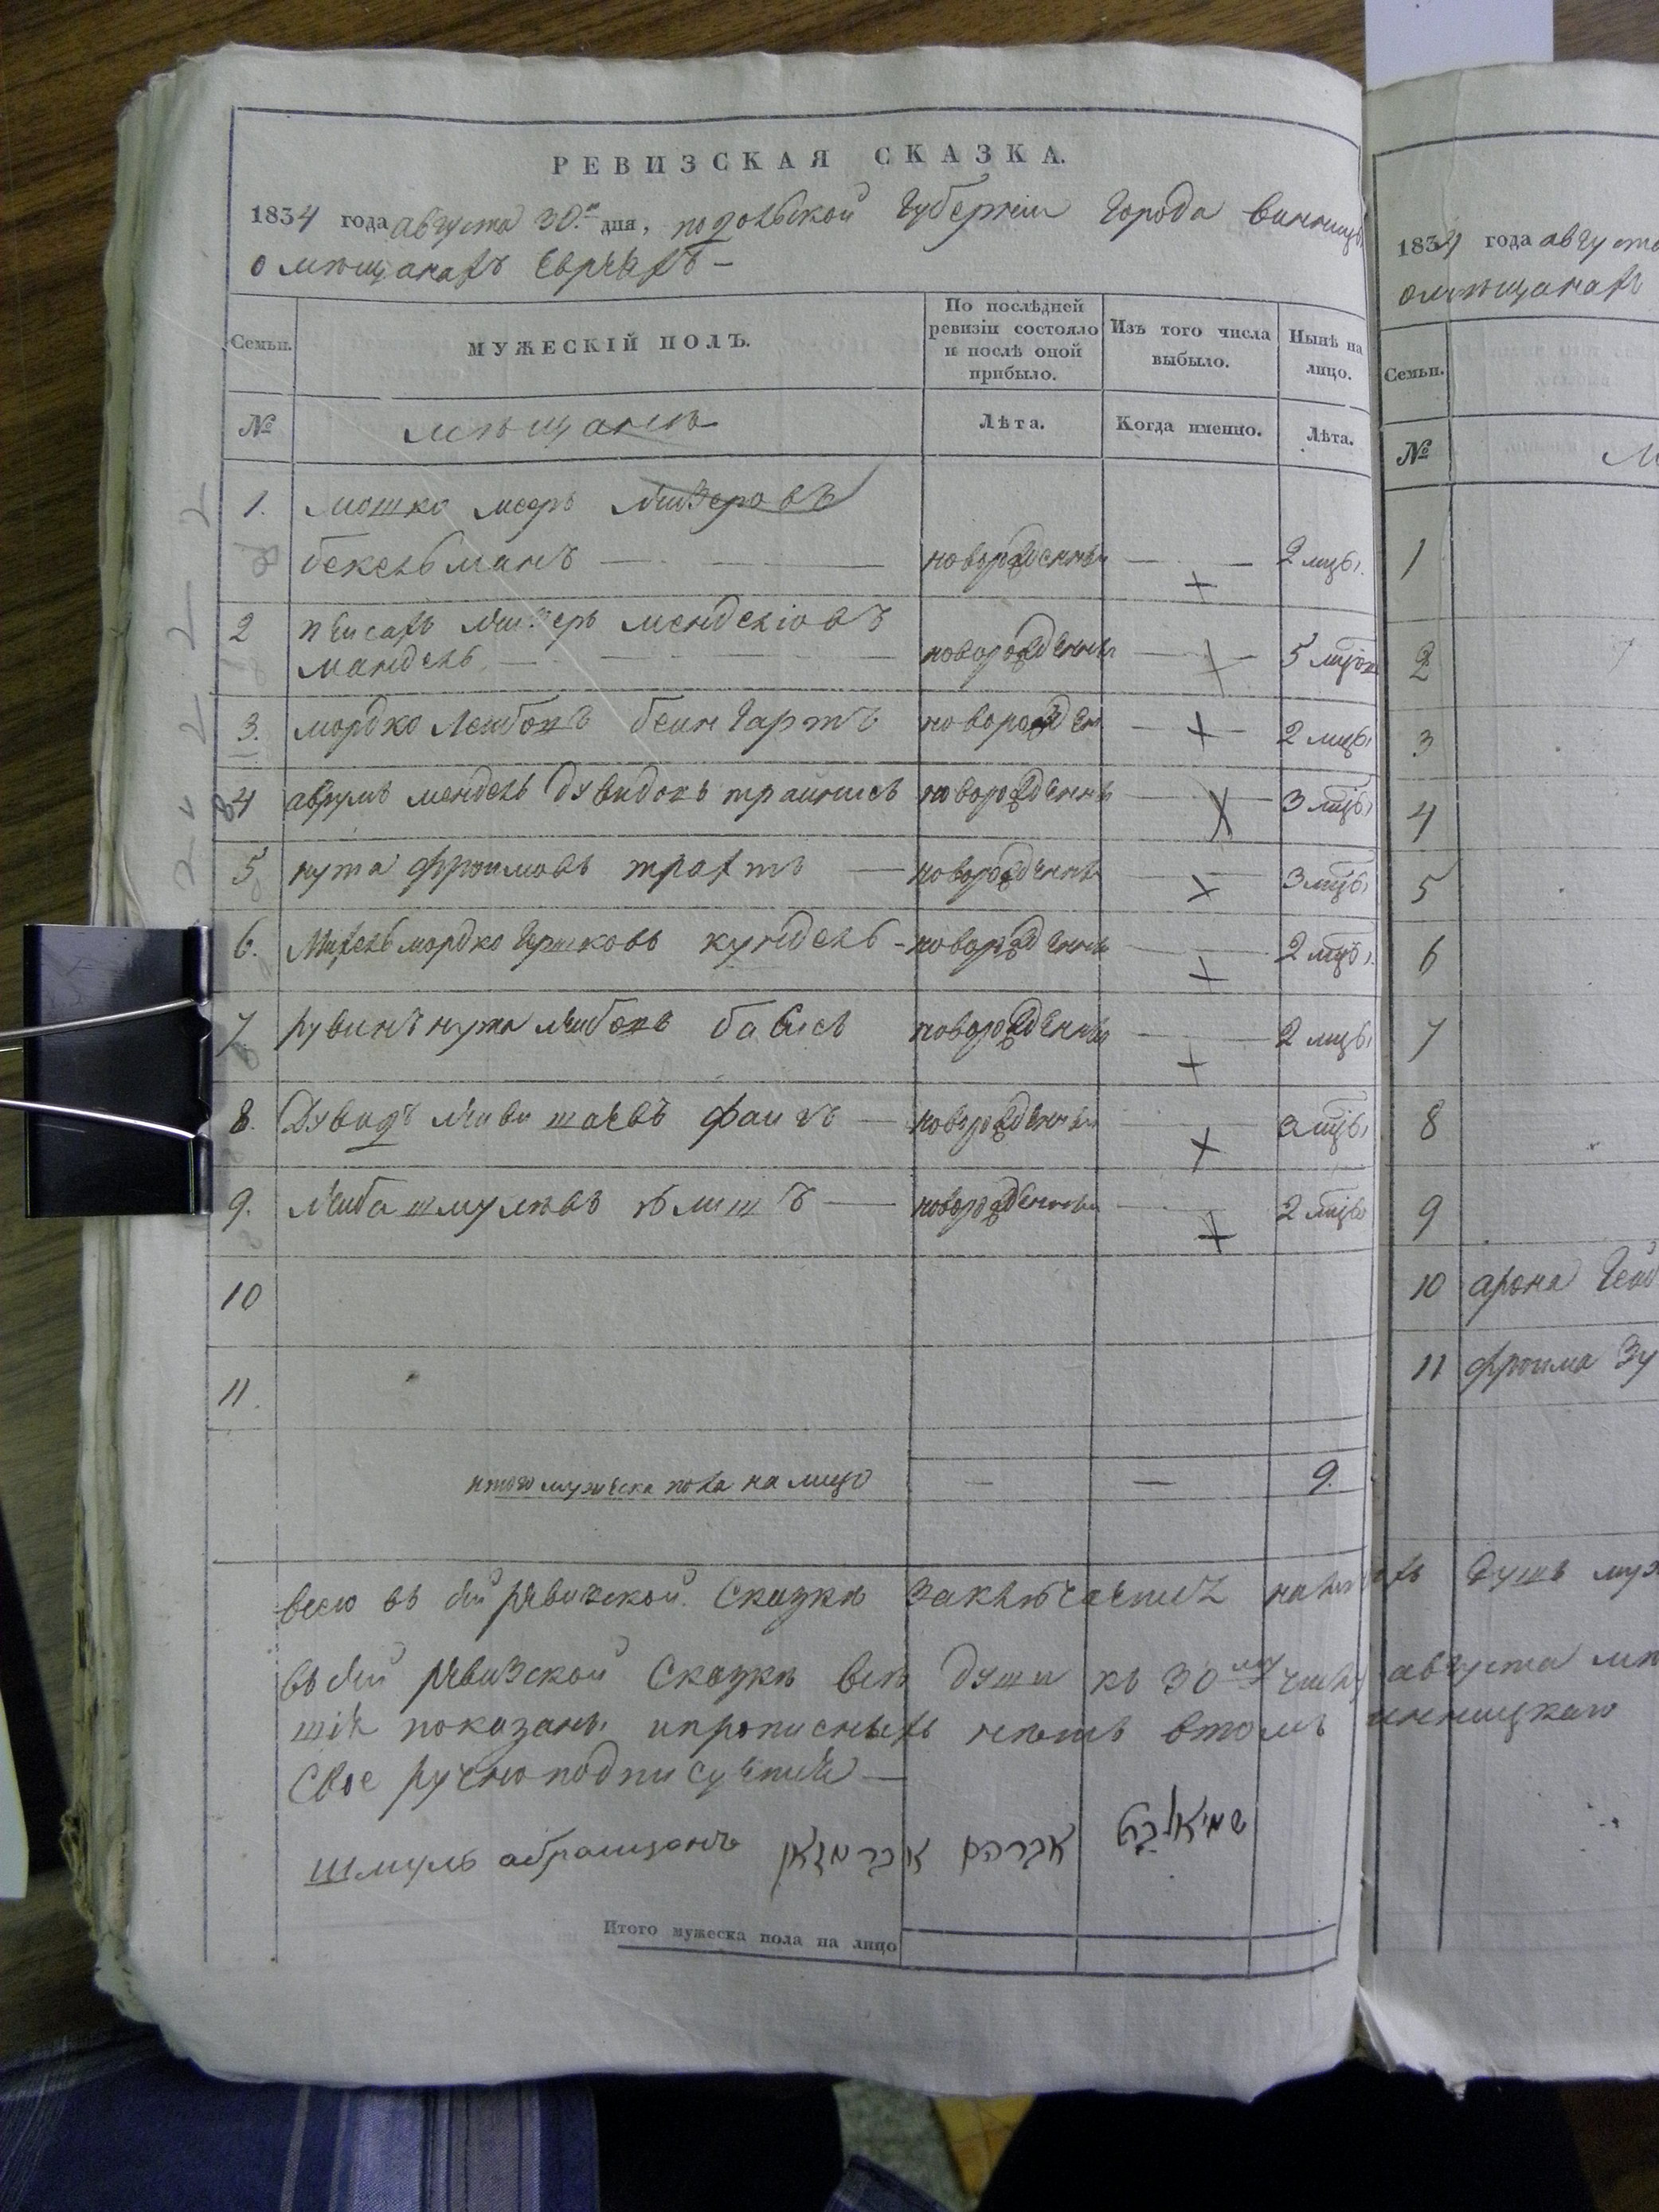 РЕВИЗСКАЯ СКАЗКА.
1834 года августа 30го дня, подольской Губернии Города винницы
о мѣщанахъ Евреяхъ —
Семьи.
МУЖЕСКІЙ ПОЛЪ.
По послѣдней ревизіи состояло и послѣ оной прибыло.
Изъ того числа выбыло.
Нынѣ на лицо.
№
мѣщанъ
Лѣта.
Когда именно.
Лѣта.
1. мошко мееръ лейзеровъ
бекельманъ — новорожденны — 2 мцы.
2 пейсахъ лейзеръ менделіовъ
мандель — новорожденны — 5 мцов
3. мордко лейбовъ беингартъ новорожден — 2 мцы
4 аврумъ мендель дувидовъ новорожденны — 3 мцы
5 нута фроимовъ трахтъ — новорожденны — 3 мцы
6. Михель мордко Гершковъ кундель - новорожденны — 2 мцы.
7 рувинъ нута лейбовъ новорожденны — 2 мцы
8. Дувидъ фаигъ — новорожденны — мцы
9. лейба шмулевъ — новорожденны — 2 мцы
10
11.
итого мужеска пола на лицо — — 9.
всего въ сей ревизской Сказкѣ заключается
въ сей ревизской Сказкѣ всѣ души къ 30му числу
показаны и прописныхъ нетъ втомъ
Свое ручно подписуемся —
шмуль абрамзонъ
שמואל אברהם
Итого мужеска пола на лицо
1834 года августа
о мѣщанахъ
Семьи.
№
1
2
3
4
5
6
7
8
9
10 арона
11 фроима Зу
душъ муж
августа
инницкаго